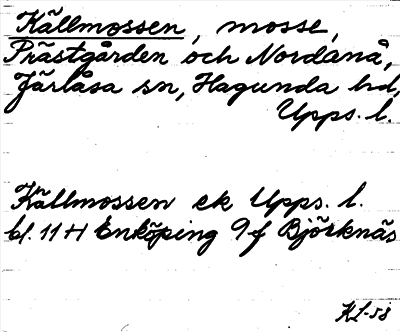 Källmossen, mosse,
Prästgården och Nordanå,
Järlåsa sn, Hagunda hd,
Upps. l.
Källmossen ek Upps. l.
bl. 11 H Enköping 9 f Björknäs
KL-58